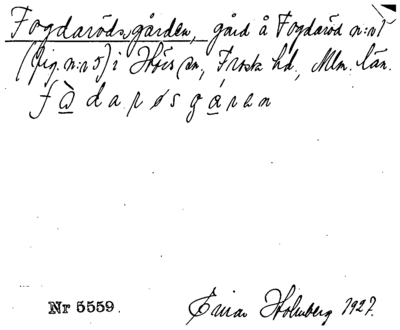 Fogdarödsgården, gård å Fogdaröd n:r 1
(fig. n:r 5) i Höörs sn, Frosta hd, Mlm. län.
Nr 5559.
Einar Holmberg 1927.